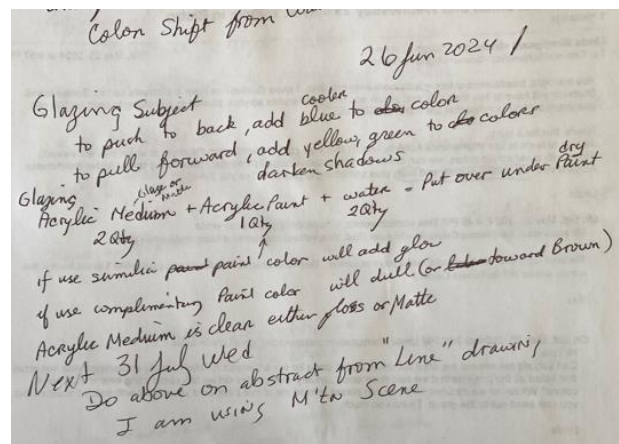 Color Shift from
26 Jun 2024 /
Glazing Subject
cooler
to push to back, add blue to color
to pull forward, add yellow, green to colors
darken shadows
Glazing
Glass or Matte
dry
Acrylic Medium + Acrylic Paint + water - Put over under Paint
2 Qty 1 Qty 2 Qty
if use similar paint color will add glow
if use complimentary Paint color will dull (or toward Brown)
Acrylic Medium is clear either gloss or Matte
Next 31 July Wed
Do above on abstract from "Line" drawing
I am using M'tn Scene